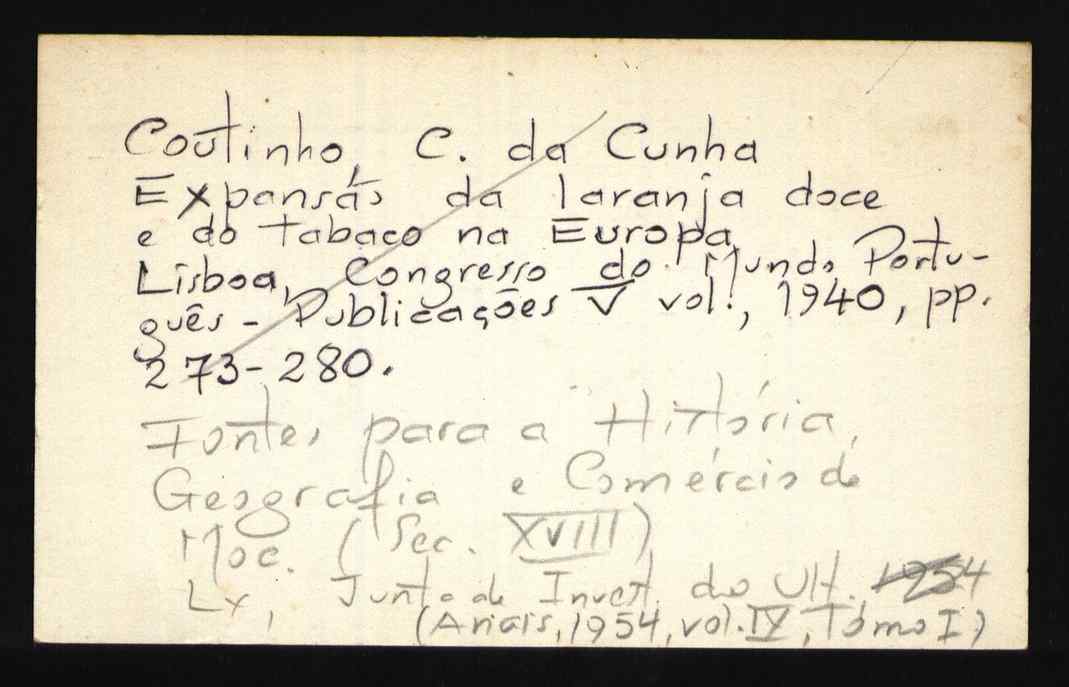 Coutinho, C. da Cunha
Expansão da laranja doce
e do tabaco na Europa,
Lisboa, Congresso do Mundo Portu-
guês - Publicações V vol., 1940, pp.
273-280.
Fontes para a História,
Geografia e Comércio de
Moc. (Sec. XVIII)
Lx, Junta de Invest. do Ult. 1954
(Anais, 1954, vol. IX, Tomo I)